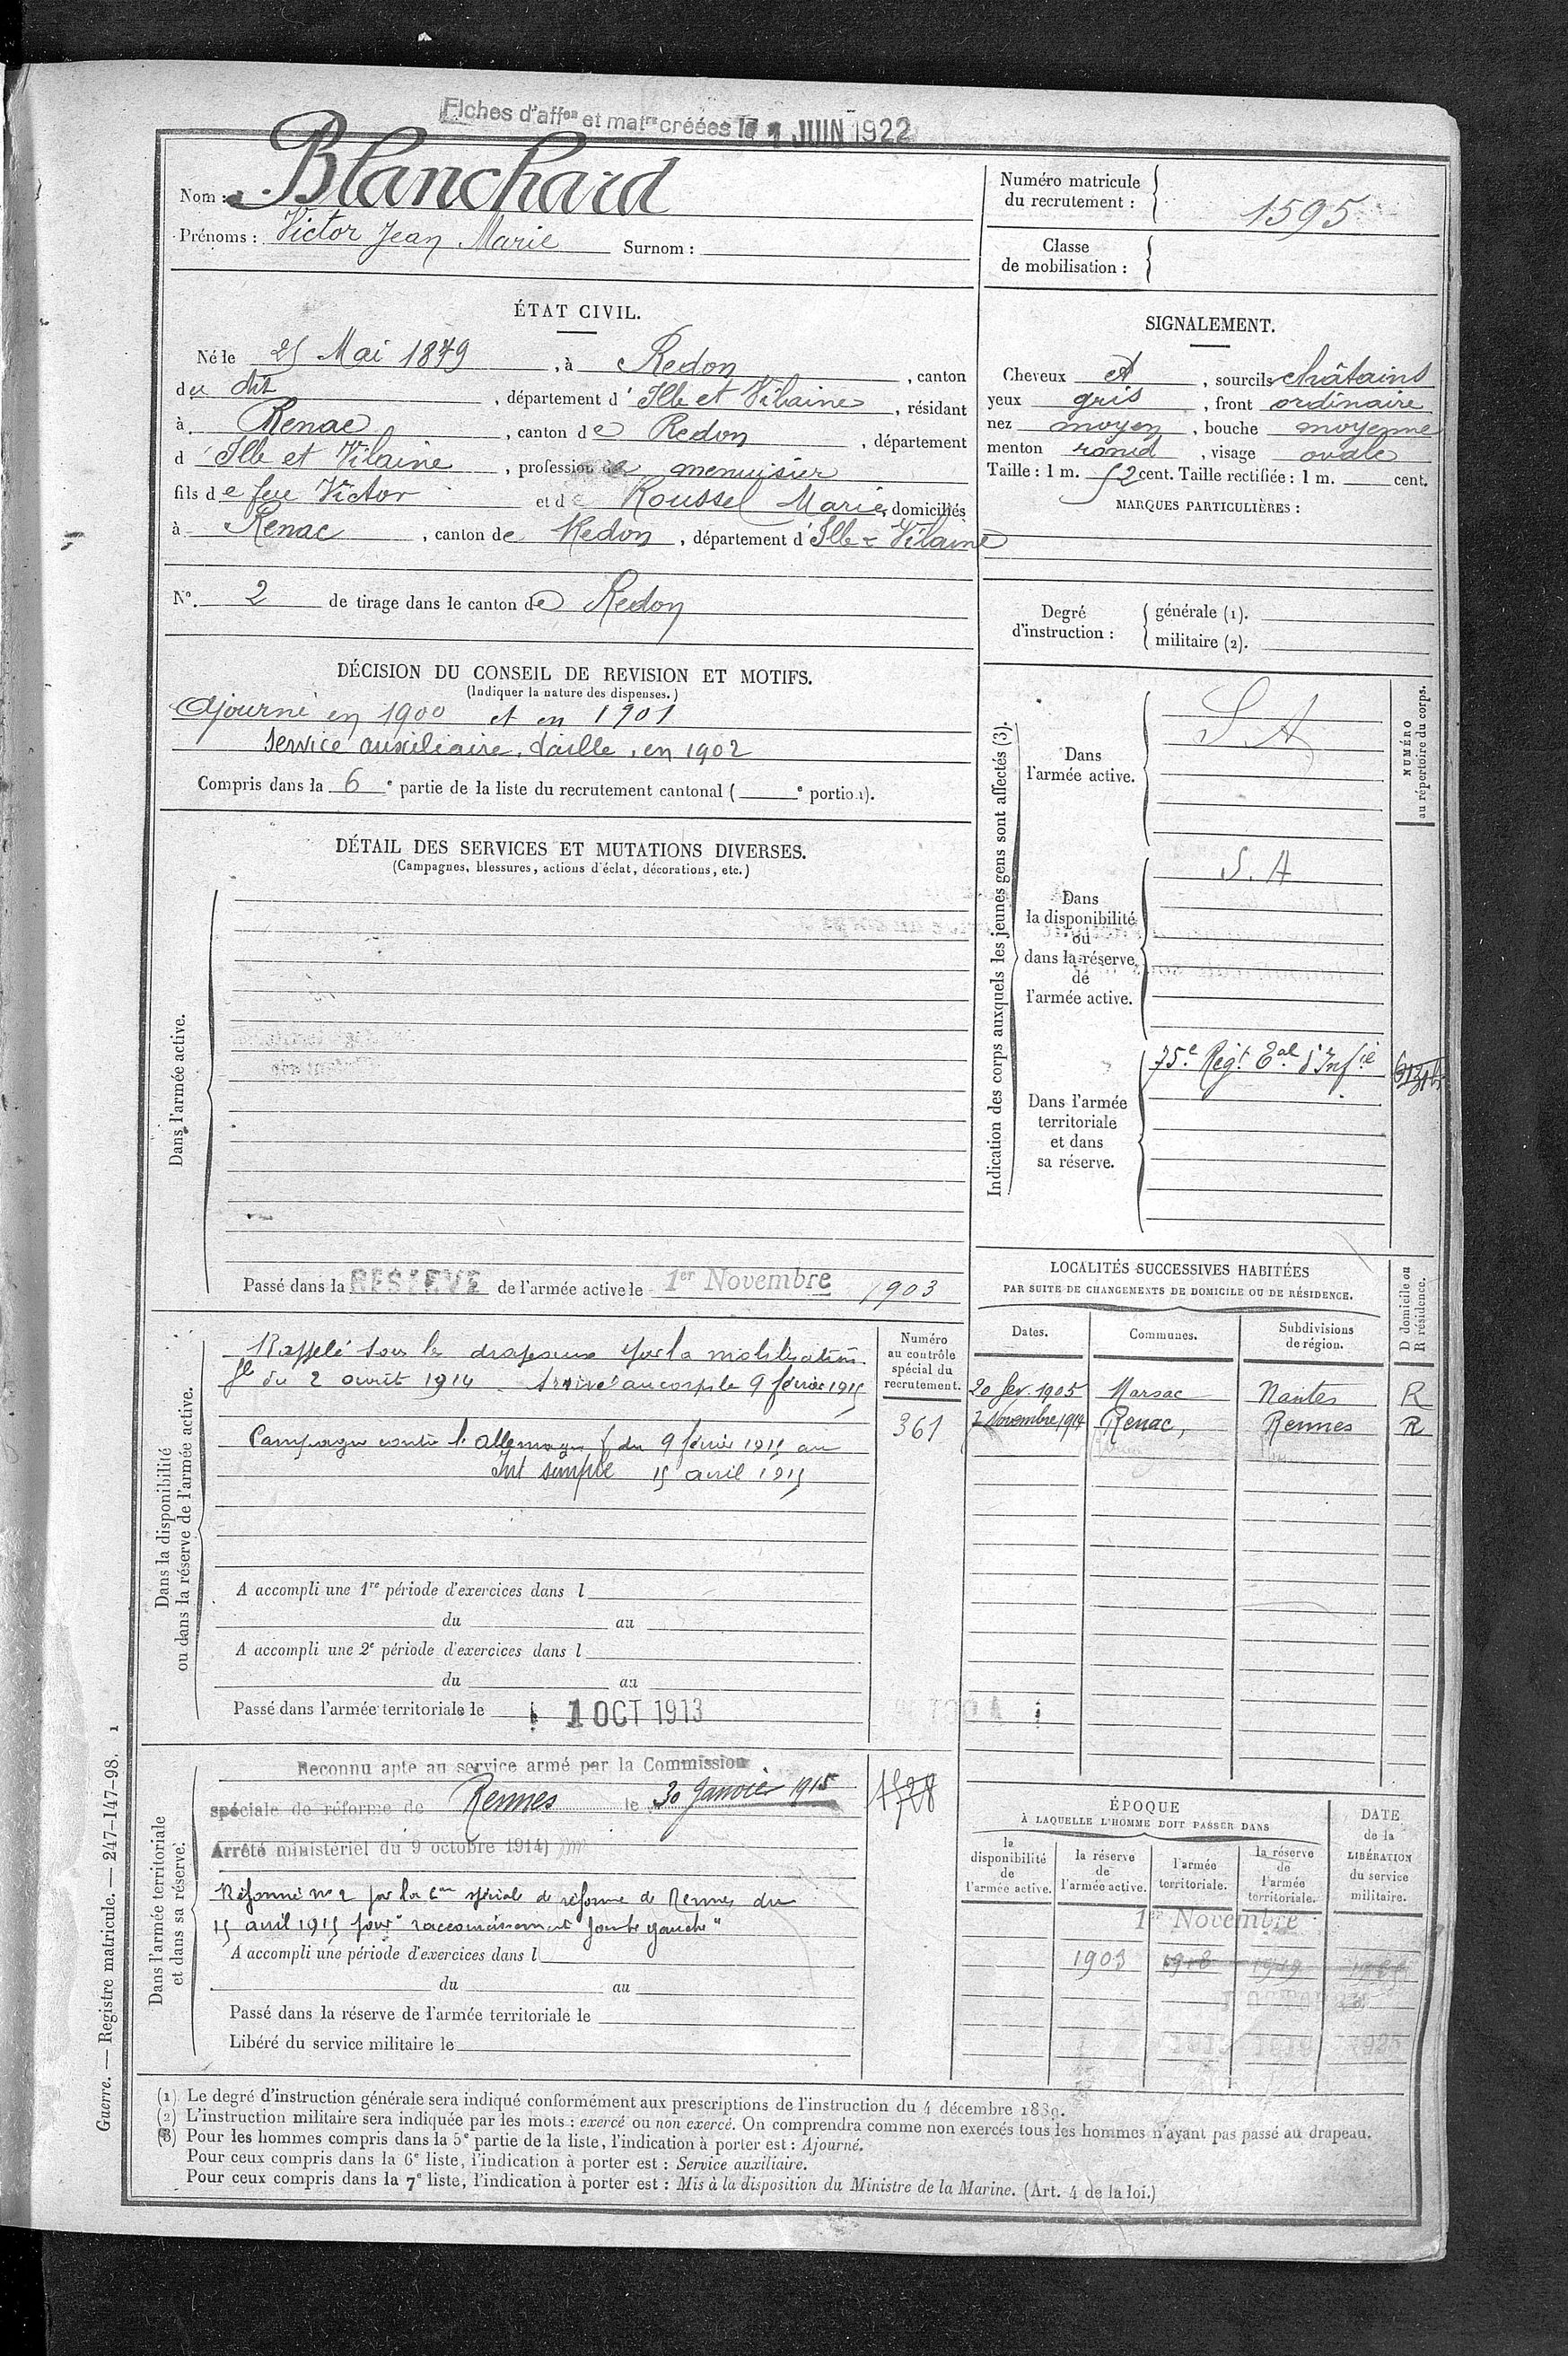 Fiches d'affon et matre créées le 1 JUIN 1922
Nom : Blanchard
Prénoms : Victor Jean Marie Surnom :
Numéro matricule
du recrutement :
1595
Classe
de mobilisation :
ÉTAT CIVIL.
Né le 25 Mai 1879, à Redon, canton
du dit, département d'Ille et Vilaine, résidant
à Renac, canton de Redon, département
d'Ille et Vilaine, profession de menuisier
fils de feu Victor et de Roussel Marie, domiciliés
à Renac, canton de Redon, département d'Ille & Vilaine
N° 2 de tirage dans le canton de Redon
SIGNALEMENT.
Cheveux et, sourcils châtains
yeux gris, front ordinaire
nez moyen, bouche moyenne
menton rond, visage ovale
Taille : 1 m. 52 cent. Taille rectifiée : 1 m. cent.
MARQUES PARTICULIÈRES :
Degré
d'instruction :
générale (1).
militaire (2).
DÉCISION DU CONSEIL DE REVISION ET MOTIFS.
(Indiquer la nature des dispenses.)
Ajourné en 1900 et en 1901
Service auxiliaire, taille, en 1902
Compris dans la 6e partie de la liste du recrutement cantonal ( e portion).
DÉTAIL DES SERVICES ET MUTATIONS DIVERSES.
(Campagnes, blessures, actions d'éclat, décorations, etc.)
Dans l'armée active.
Passé dans la RESERVE de l'armée active le 1er Novembre 1903
Indication des corps auxquels les jeunes gens sont affectés (3).
NUMÉRO
au répertoire du corps.
Dans
l'armée active.
S. A
Dans
la disponibilité
ou
dans la réserve
de
l'armée active.
S. A
Dans l'armée
territoriale
et dans
sa réserve.
75e Régt Eal d'Infie
Dans la disponibilité
ou dans la réserve de l'armée active.
Rappelé sous les drapeaux par la mobilisation
gle du 2 août 1914 Arrivé au corps le 9 février 1915
Campagne contre l'Allemagne du 9 février 1915 au
Int simple 15 avril 1915
Numéro
au contrôle
spécial du
recrutement.
361
A accompli une 1re période d'exercices dans l
du au
A accompli une 2e période d'exercices dans l
du au
Passé dans l'armée territoriale le 1 OCT 1913
LOCALITÉS SUCCESSIVES HABITÉES
PAR SUITE DE CHANGEMENTS DE DOMICILE OU DE RÉSIDENCE.
D domicile ou
R résidence.
Dates. Communes. Subdivisions
de région.
20 fev. 1905 Marsac Nantes R
2 Novembre 1914 Renac, Rennes R
Dans l'armée territoriale
et dans sa réserve.
Reconnu apte au service armé par la Commission
spéciale de réforme de Rennes le 30 Janvier 1915
Arrêté ministériel du 9 octobre 1914)
Réformé n° 2 par la Con spéciale de réforme de Rennes du
15 avril 1915 pour "raccourcissement jambe gauche"
A accompli une période d'exercices dans l
du au
Passé dans la réserve de l'armée territoriale le
Libéré du service militaire le
ÉPOQUE
À LAQUELLE L'HOMME DOIT PASSER DANS
la
disponibilité
de
l'armée active.
la réserve
de
l'armée active.
l'armée
territoriale.
la réserve
de
l'armée
territoriale.
DATE
de la
LIBÉRATION
du service
militaire.
1er Novembre
1903
Guerre. — Registre matricule. — 247-147-98. 1
(1) Le degré d'instruction générale sera indiqué conformément aux prescriptions de l'instruction du 4 décembre 1889.
(2) L'instruction militaire sera indiquée par les mots : exercé ou non exercé. On comprendra comme non exercés tous les hommes n'ayant pas passé au drapeau.
(3) Pour les hommes compris dans la 5e partie de la liste, l'indication à porter est : Ajourné.
Pour ceux compris dans la 6e liste, l'indication à porter est : Service auxiliaire.
Pour ceux compris dans la 7e liste, l'indication à porter est : Mis à la disposition du Ministre de la Marine. (Art. 4 de la loi.)